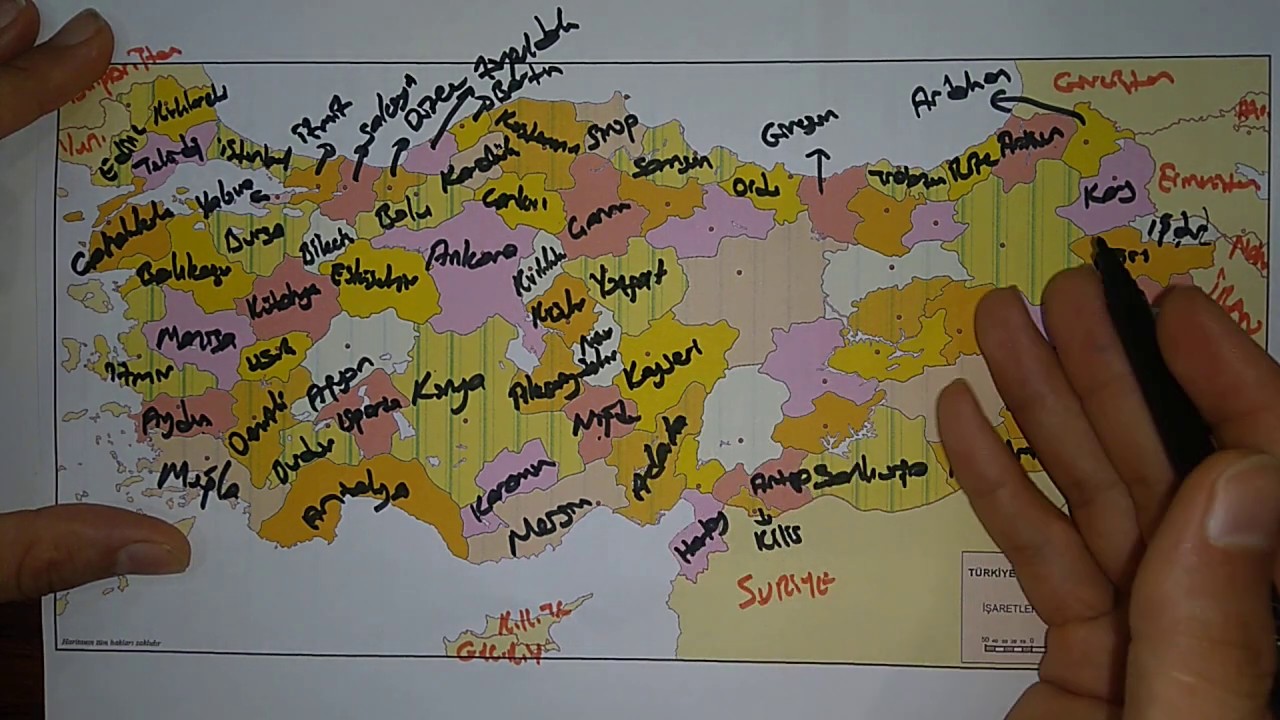 Zonguldak
Bartın
Düzce
İzmit
Ardahan
Giresun
Kırklareli
Edirne
Tekirdağ
İstanbul
Karabük
Kastamonu
Sinop
Samsun
Ordu
Trabzon
Rize
Artvin
Kars
Ermenistan
Iğdır
Çankırı
Yalova
Bursa
Bilecik
Bolu
Ankara
Balıkesir
Kütahya
Eskişehir
Kırıkkale
Yozgat
Manisa
Uşak
Afyon
Kırşehir
İzmir
Konya
Aksaray
Kayseri
Aydın
Denizli
Isparta
Niğde
Adana
Muğla
Burdur
Antalya
Karaman
Mersin
Hatay
Antep
Şanlıurfa
Kilis
SURİYE
İran
K.K.T.C
G.K.R.Y
TÜRKİYE
İŞARETLER
50 40 30 20 10 0
Haritanın tüm hakları saklıdır